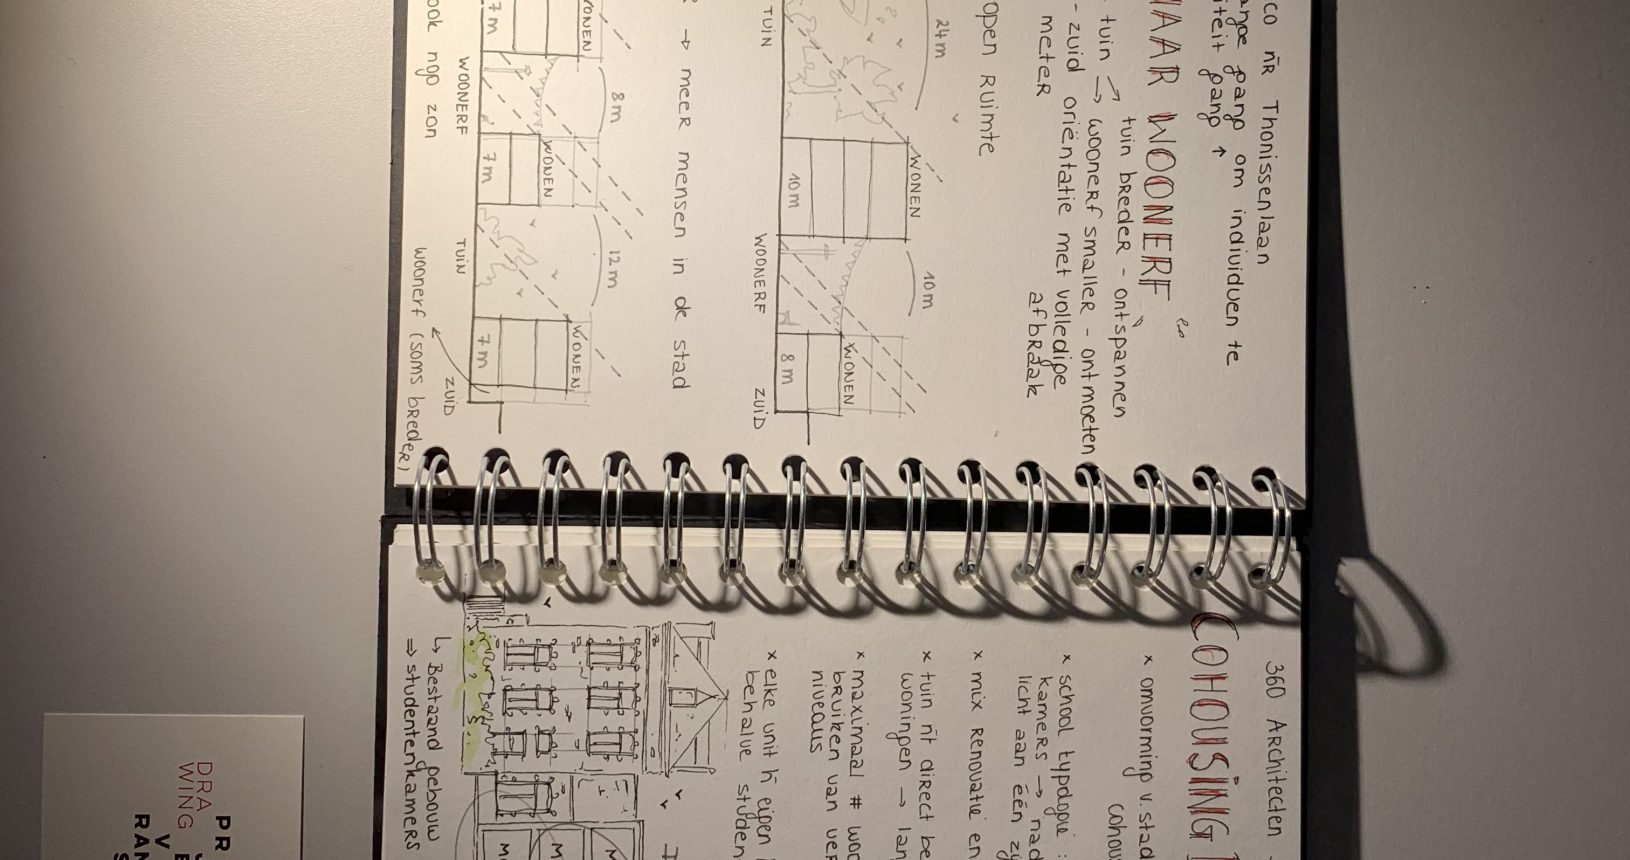 co n̄R Thonissenlaan
gang om individuen te
gang ↑
NAAR WOONERF
tuin ↗ tuin breder - ontspannen
→ woonerf smaller - ontmoeten
- zuid oriëntatie met volledige
meter afbraak
open Ruimte
24m
10m
WONEN
WONEN
10m
8m
TUIN
WOONERF
ZUID
→ meer mensen in de stad
8m
12m
WONEN
WONEN
WONEN
7m
7m
7m
WOONERF
TUIN
ZUID
ook ngo zon
woonerf (soms breder)
360 Architecten
COHOUSING
x omvorming v. stad
cohou
x school typologie :
kamers → nad
licht aan één z
x mix Renovatie en
x tuin n̄t direct be
woningen → lan
x maximaal # woo
bruiken van ver
niveaus
x elke unit h̄ eigen
behalve studen
↳ Bestaand gebouw
⇒ studentenkamers
M
M
M
PR
DRA
WING
V
RAN